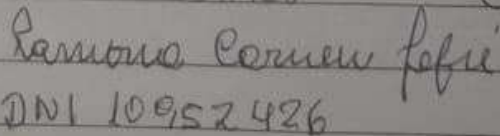 Ramona Carmen
DNI 10952426